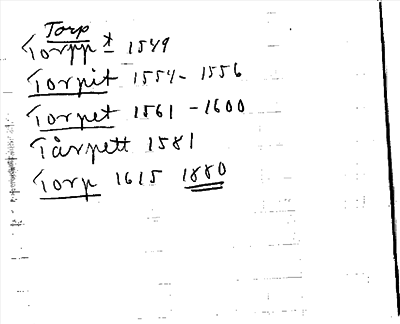 Torp
Torpp ± 1549
Torpit 1554-1556
Torpet 1561-1600
Tårpett 1581
Torp 1615 1880